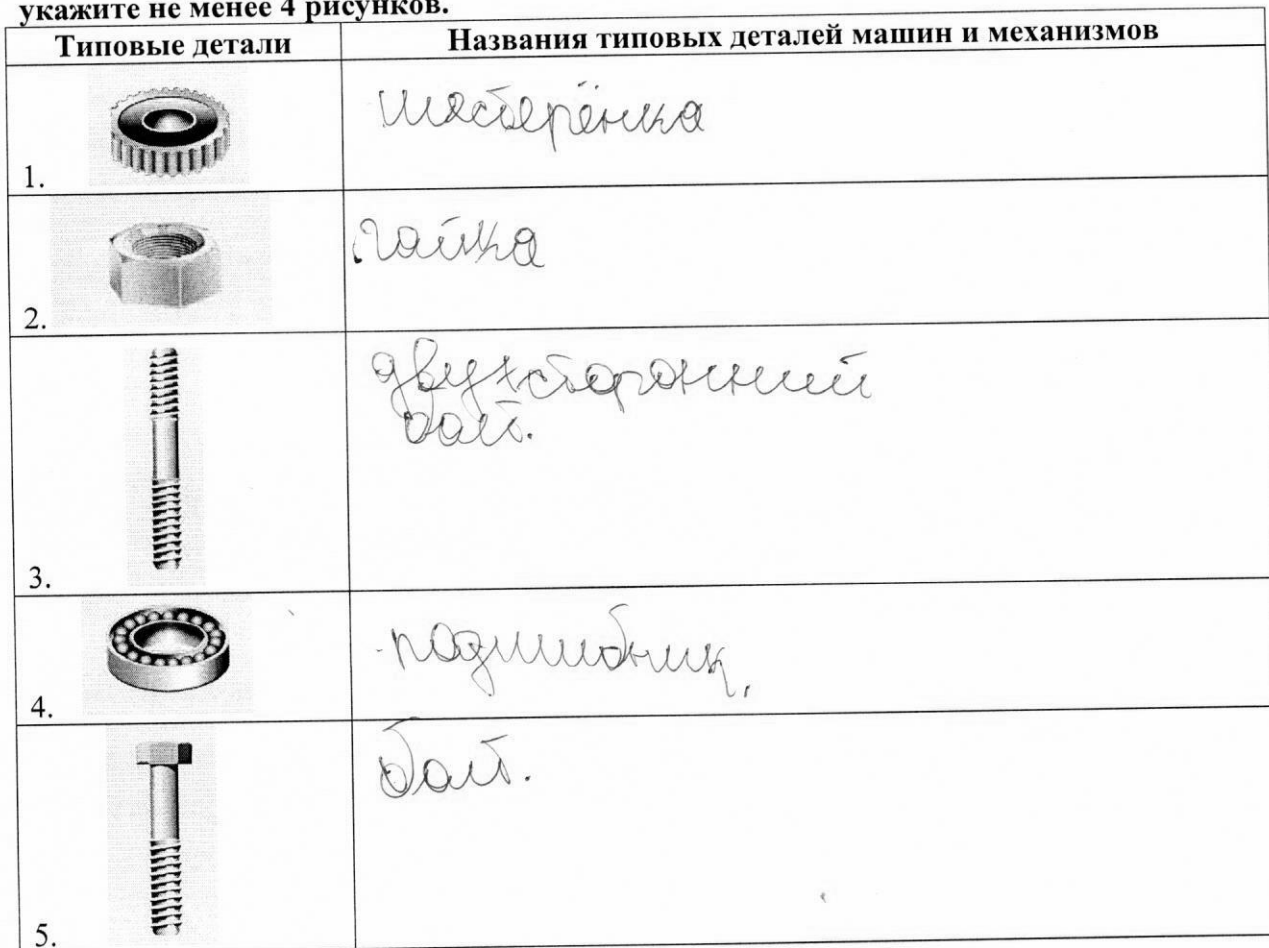 укажите не менее 4 рисунков.
Типовые детали
Названия типовых деталей машин и механизмов
1.
шестерёнка
2.
гайка
3.
двухсторонний
болт.
4.
подшибник.
5.
болт.